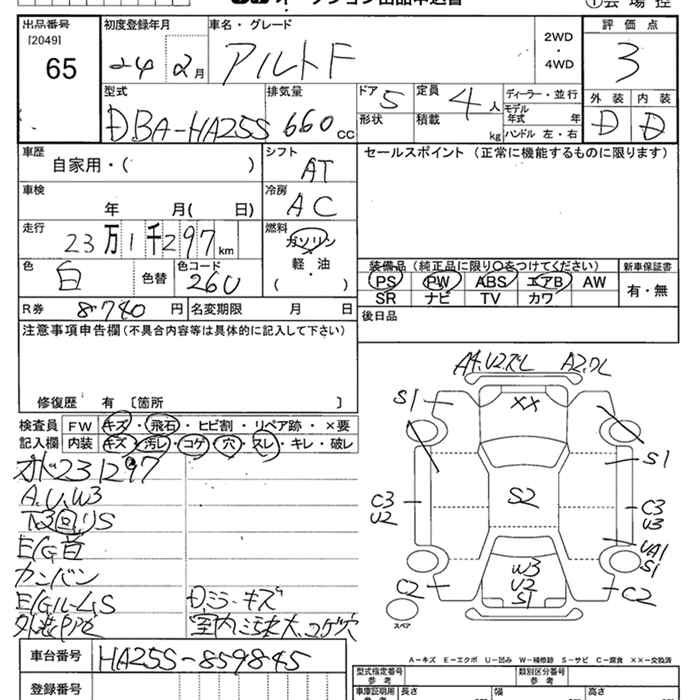 出品番号
[2049]
65
初度登録年月
24 2月
車名・グレード
アルト F
2WD
・
4WD
評価点
3
外装 内装
D D
型式
DBA-HA25S
排気量
660 CC
ドア 5
形状
定員 4人
積載 kg
ディーラー・並行
モデル
年式 年
ハンドル 左・右
車歴
自家用・( )
シフト
AT
セールスポイント (正常に機能するものに限ります)
車検
年 月( 日)
冷房
AC
走行
23万1千297 km
燃料
ガソリン
軽・油
( )
色
白
色替
色コード
26U
装備品 (純正品に限り○をつけてください)
PS PW ABS エアB AW
SR ナビ TV カワ
新車保証書
有・無
R券 8740円
名変期限 月 日
後日品
注意事項申告欄(不具合内容等は具体的に記入して下さい)
修復歴 有 [箇所 ]
検査員
記入欄
FW キズ・飛石・ヒビ割・リペア跡・×要
内装 キズ・汚レ・コゲ・穴・スレ・キレ・破レ
231297
A.U.W3
下回りS
E/G音
カンバン
E/GルームS
Dミラーキズ
A4.U2.ズレ
A2.ワレ
S1
XX
S1
S2
C3
U2
C3
U3
UA1
S1
W3
U2
S1
C2
C2
スペア
A-キズ E-エクボ U-凹み W-補修跡 S-サビ C-腐食 XX-交換済
車台番号
HA25S-859845
登録番号
型式指定番号
参考
類別区分番号
参考
車庫証明用
長さ
幅
高さ